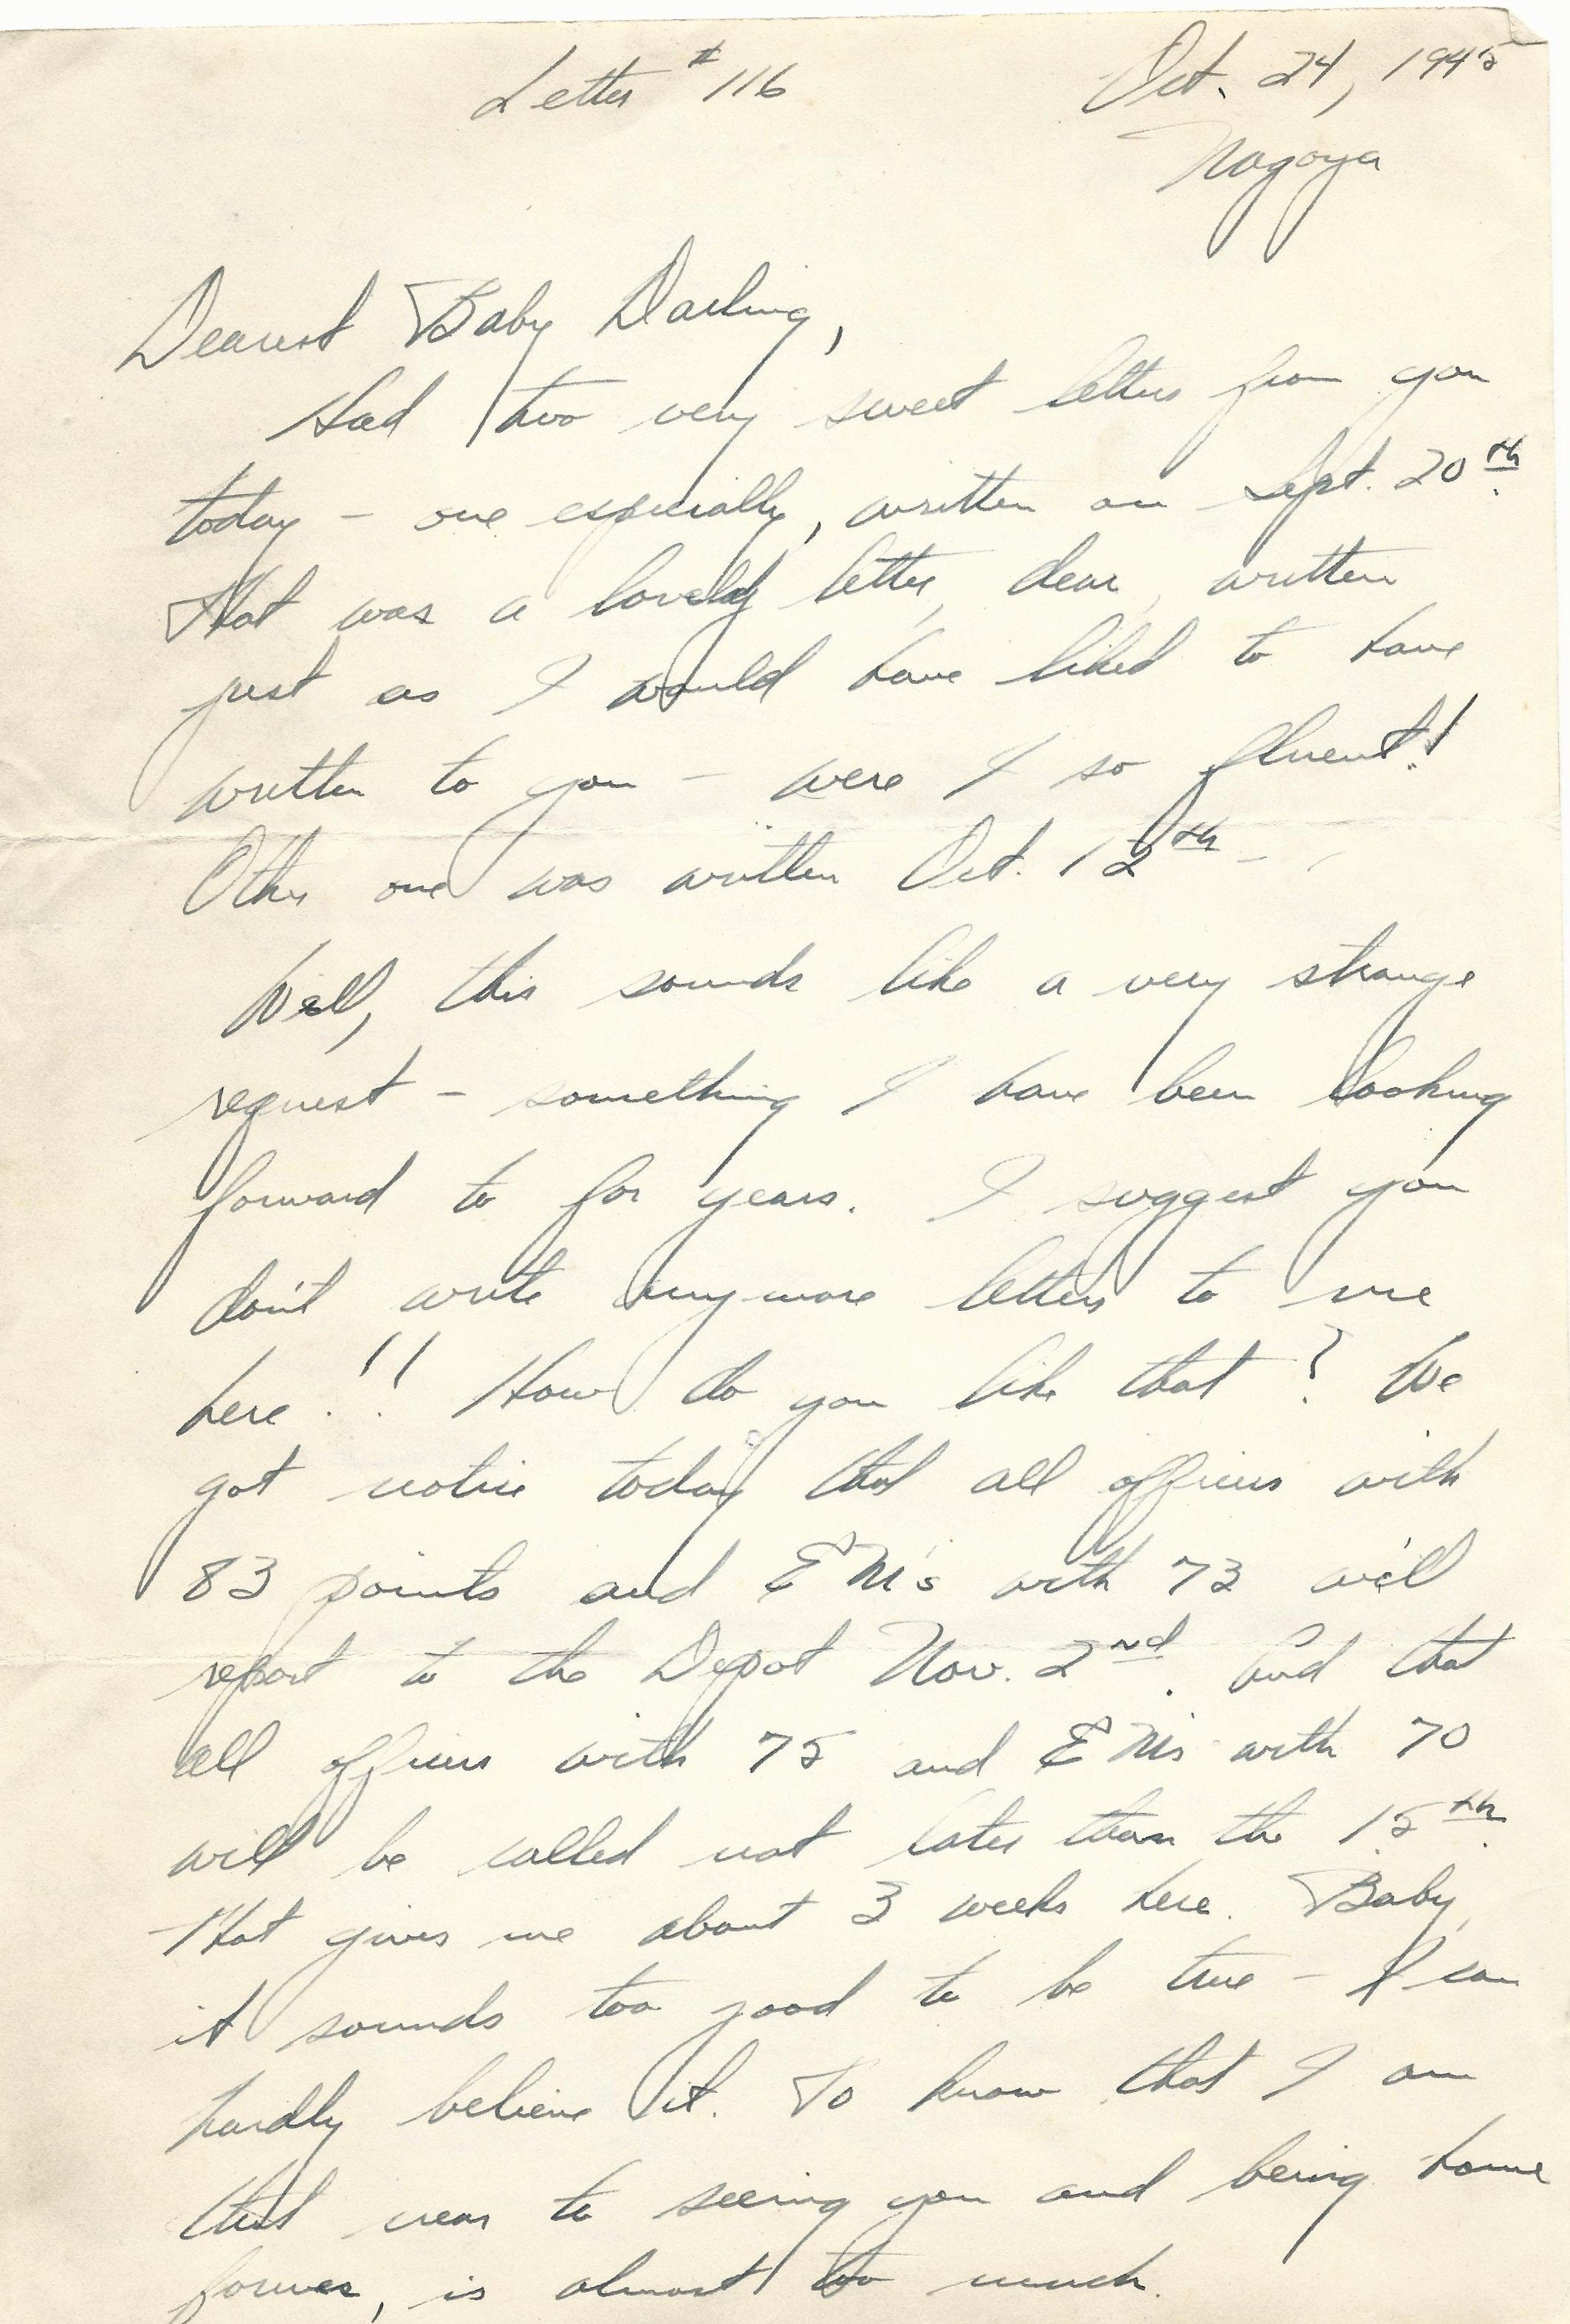 Letter # 116
Oct. 24, 1945
Nagoya
Dearest Baby Darling,
Had two very sweet letters from you
today - one especially, written on Sept. 20th.
That was a lovely letter, dear, written
just as I would have liked to have
written to you - were I so fluent!
Other one was written Oct. 12th -
Well, this sounds like a very strange
request - something I have been looking
forward to for years. I suggest you
don't write anymore letters to me
here!! How do you like that? We
got notice today that all officers with
83 points and EM's with 73 will
report to the Depot Nov. 2nd. And that
all officers with 75 and EM's with 70
will be called not later than the 15th.
That gives me about 3 weeks here. Baby,
it sounds too good to be true - I can
hardly believe it. To know that I am
that near to seeing you and being home
forever, is almost too much.